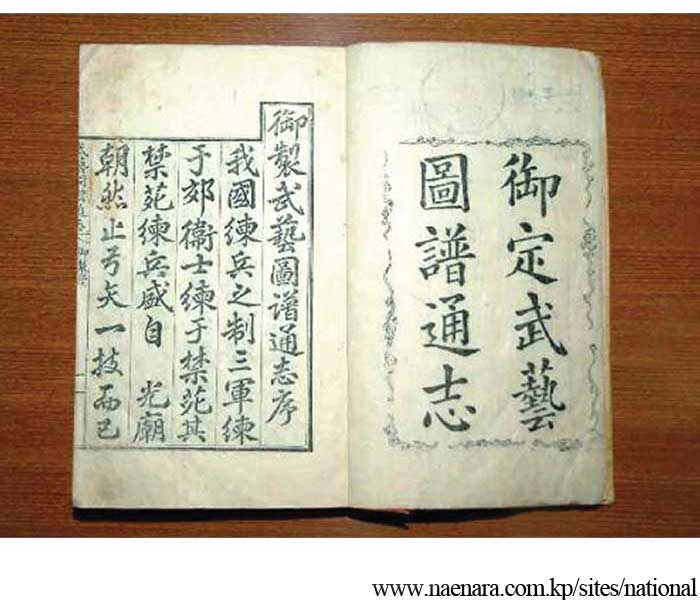 御定武藝
圖譜通志
御製武藝圖譜通志序
我國練兵之制三軍練
于郊衛士練于禁苑其
禁苑練兵盛自 光廟
朝然止弓矢一技而已
www.naenara.com.kp/sites/national